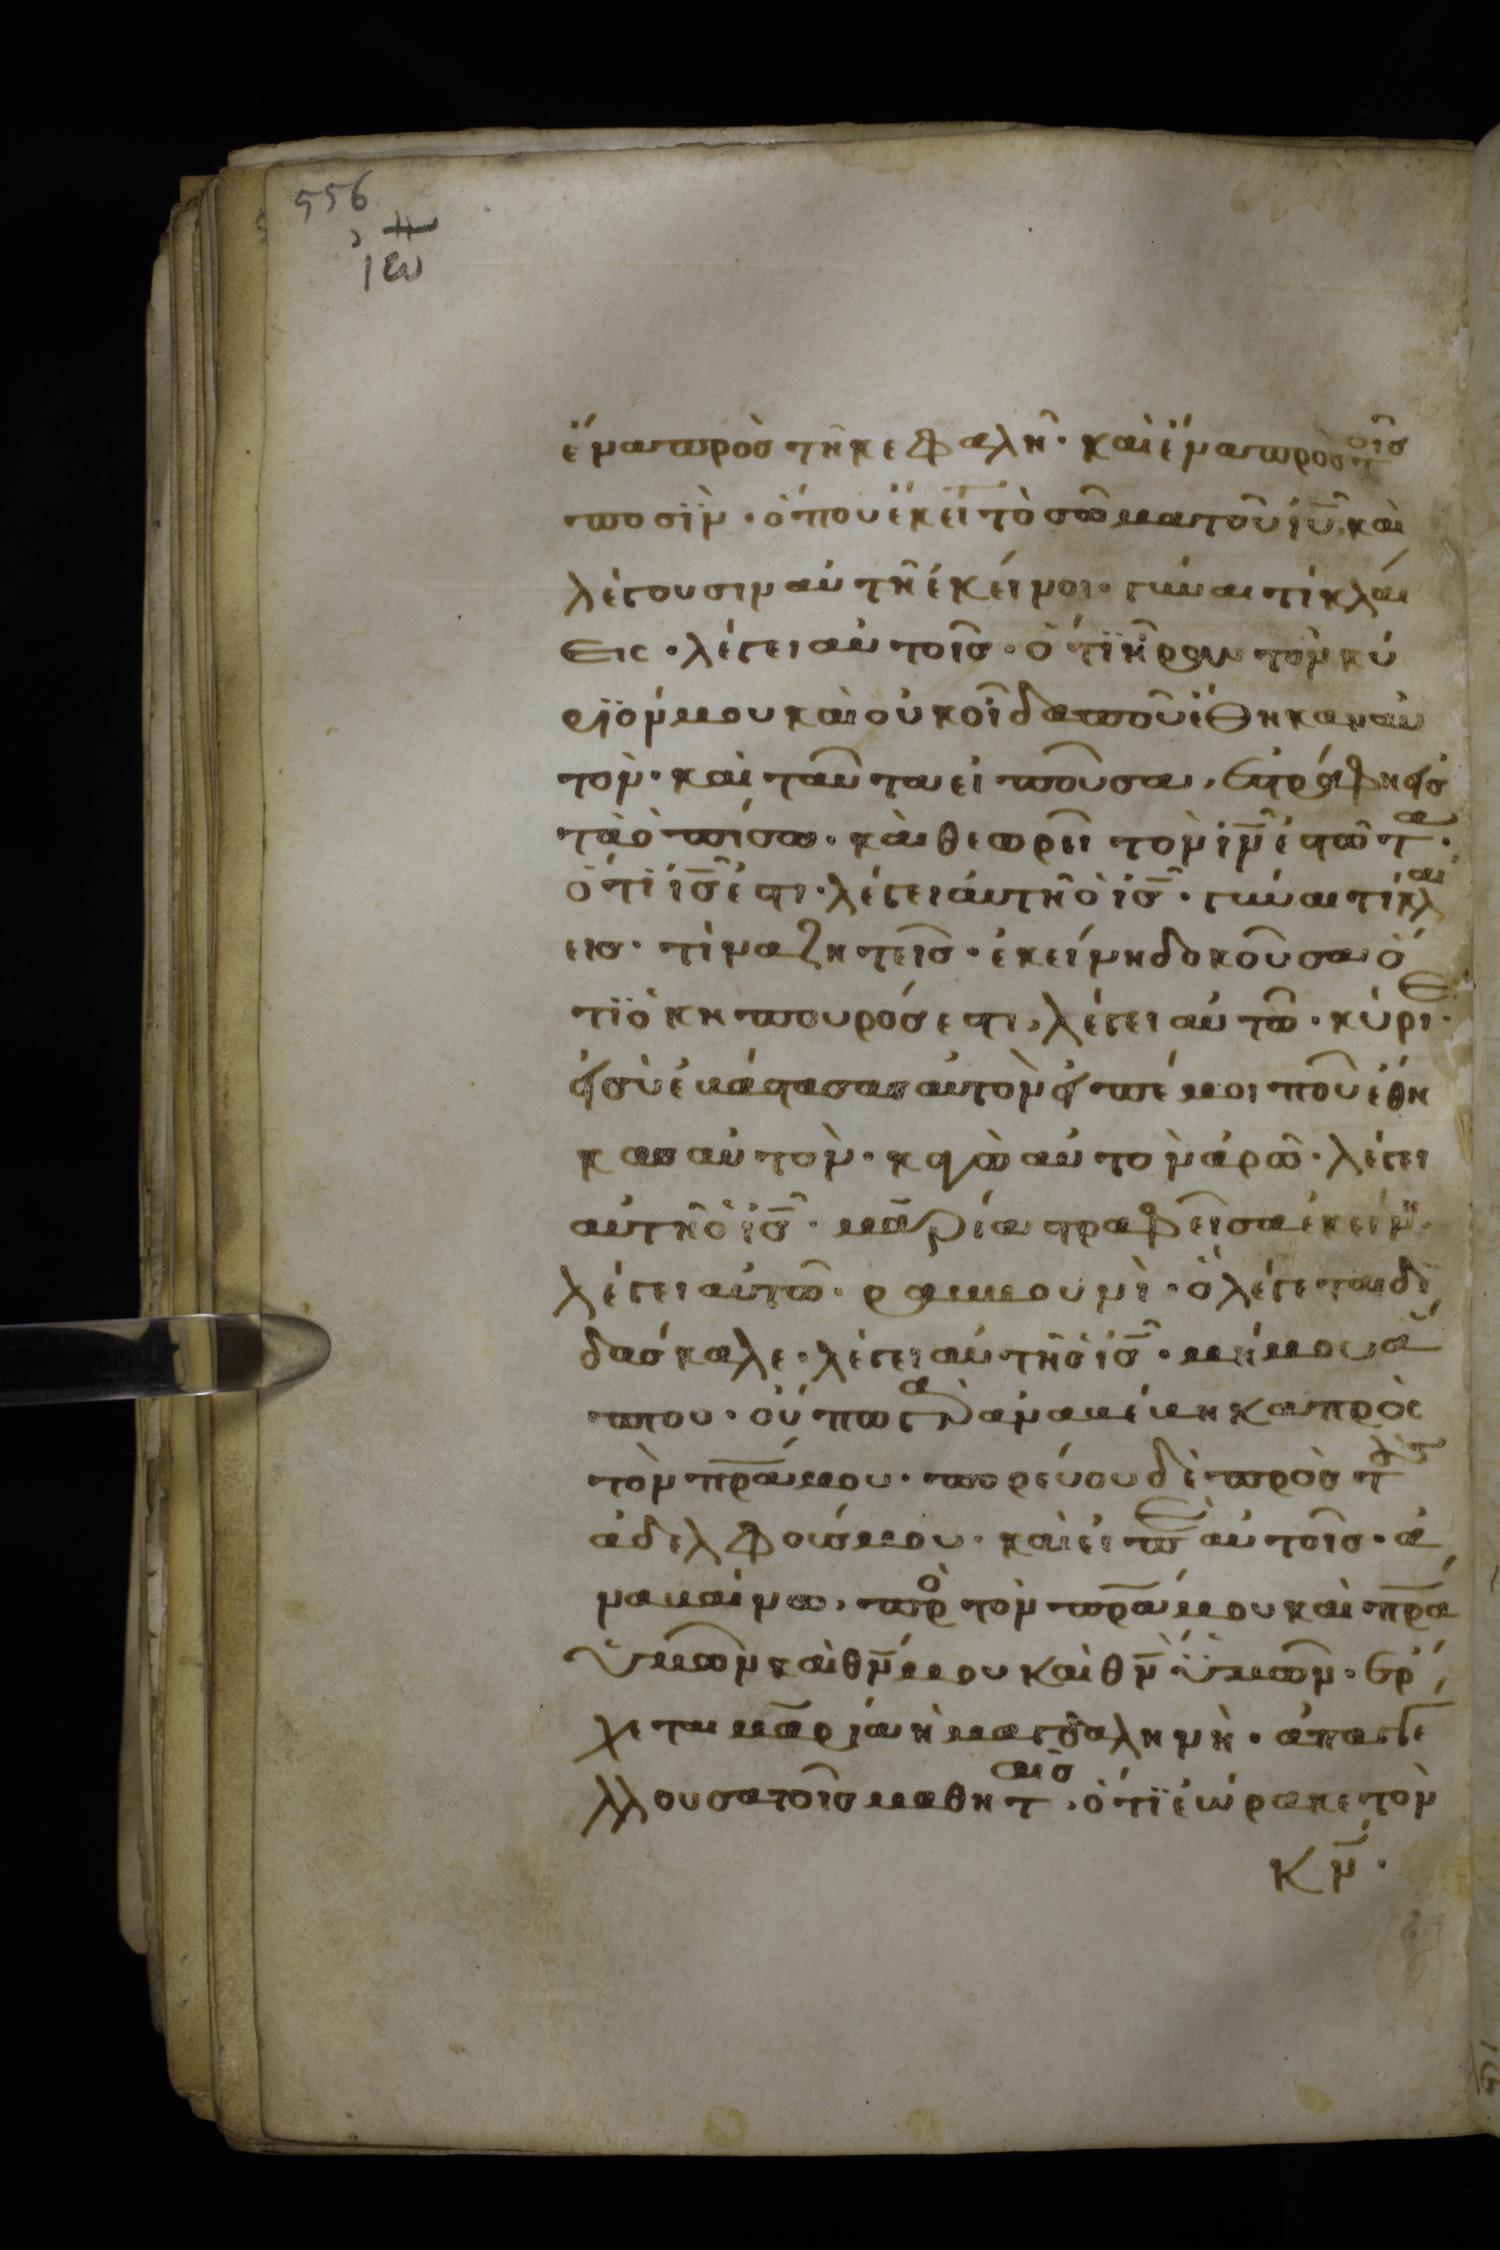 556
ιω
ἕνα πρὸς τῆ κεφαλῆ· καὶ ἕνα πρὸς τοῖς
ποσῒν· ὅπου ἔκειτο τὸ σῶμα τοῦ ιῦ, καὶ
λέγουσιν αὐτῆ ἐκεῖνοι· γύναι τί κλαί
εις· λέγει αὐτοῖς· ὅτϊ ἦραν τὸν κύ
ρϊόν μου καὶ οὐκ οἶδα ποῦ ἔθηκαν αὐ
τόν· καὶ ταῦτα εἰποῦσα, ἐστράφη εἰς
τὰ ὀπίσω· καὶ θεωρεῖ τὸν ιν ἑστῶτα·
ὅτϊ ις ἐστι· λέγει αὐτῆ ὁ ις· γύναι τί κλαί
εις· τίνα ζητεῖς· ἐκείνη δοκοῦσα ὅ
τϊ ὁ κηπουρός ἐστι, λέγει αὐτῶ· κύριε·
εἰ σὺ ἐβάστασας αὐτὸν εἰπέ μοι ποῦ ἔθη
κας αὐτὸν· κἀγὼ αὐτὸν ἀρῶ· λέγει
αὐτῆ ὁ ις· μαρία στραφεῖσα ἐκείνη
λέγει αὐτῶ· ραββουνὶ· ὃ λέγεται δι
δάσκαλε· λέγει αὐτῆ ὁ ις· μή μου ἅ
πτου· οὔπω γὰρ ἀναβέβηκα πρὸς
τὸν πρα μου· πορεύου δὲ πρὸς τοὺς
ἀδελφούς μου· καὶ εἰπὲ αὐτοῖς· ἀ
ναβαίνω, πρὸς τὸν πρα μου καὶ πρα
ὑμῶν καὶ θν μου καὶ θν ὑμῶν· ἔρ
χεται μαρία ἡ μαγδαληνὴ· ἀπαγγέ
λλουσα τοῖς μαθηταῖς, ὅτϊ ἑώρακε τὸν
κν·